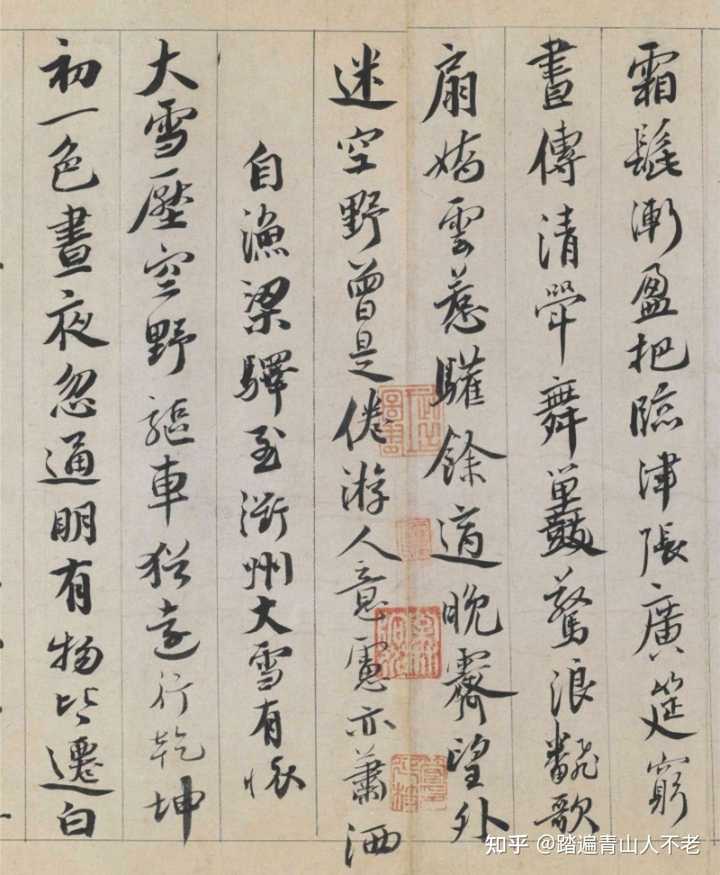 霜髭漸盈把臨津張廣筵窮
晝傳清斝舞鼉驚浪飜歌
扇嬌雲惹驩餘道晚霽望外
迷空野曾是倦游人意慮亦蕭洒
自漁梁驛至衢州大雪有懷
大雪壓空野驅車猶遠行乾坤
初一色晝夜忽通明有物皆遷白
知乎 @踏遍青山人不老